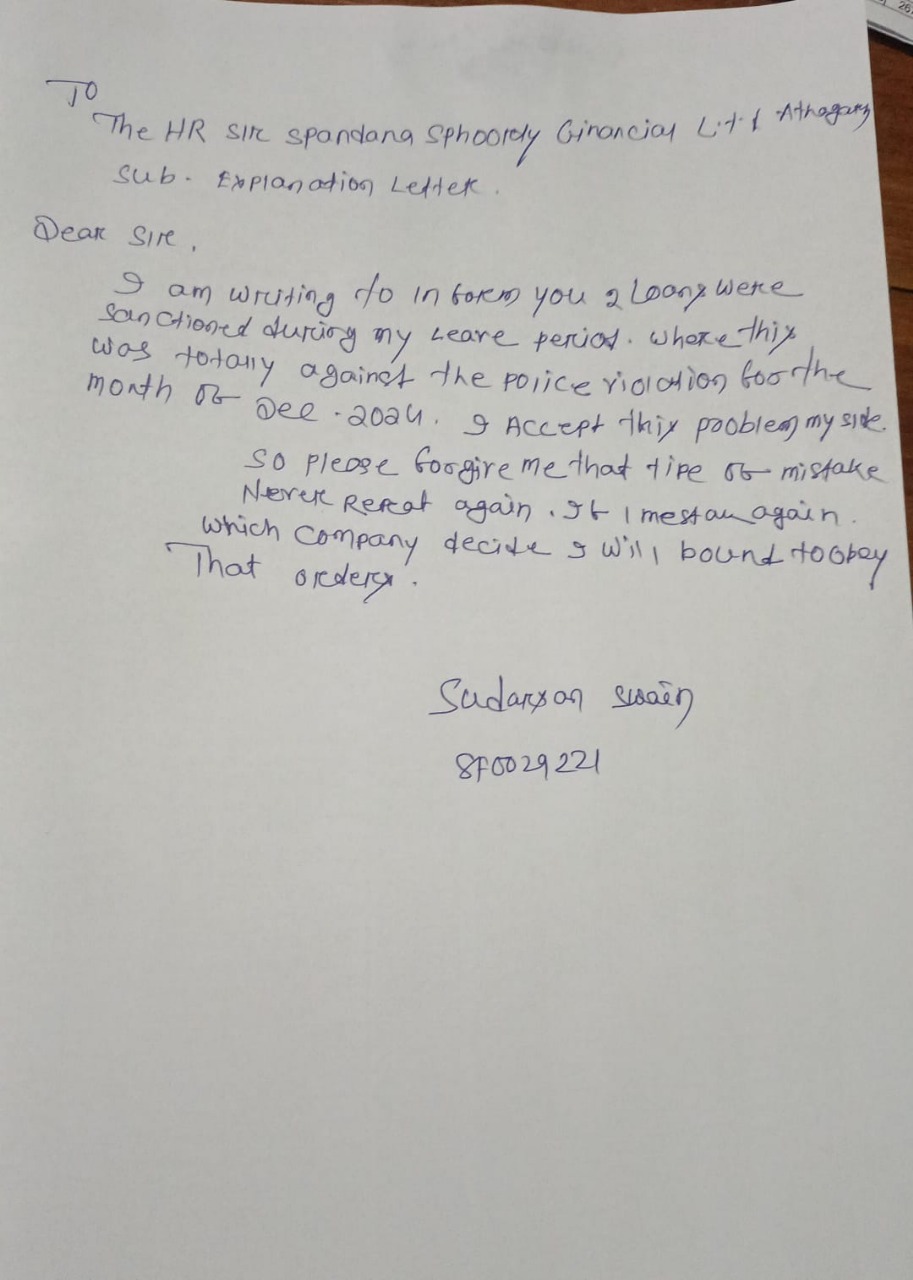 To
The HR Sir Spandana Sphoordy Financial L.t.d Athagarh
Sub. Explanation Letter.
Dear Sir,
I am writing to inform you 2 Loans were
Sanctioned during my Leave period. where this
was totany against the police violation foor the
month of Dec. 2024. I Accept this prooblem my side.
So please foorgive me that tipe of mistake
Never Repeat again. If I mestau again.
which company decide I will bound to obey
That orders.
Sudarsan Swain
SF0029221
26